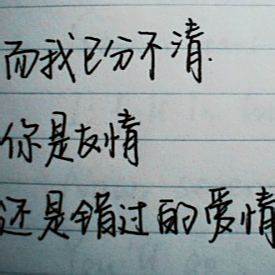 而我已分不清.
你是友情
还是错过的爱情